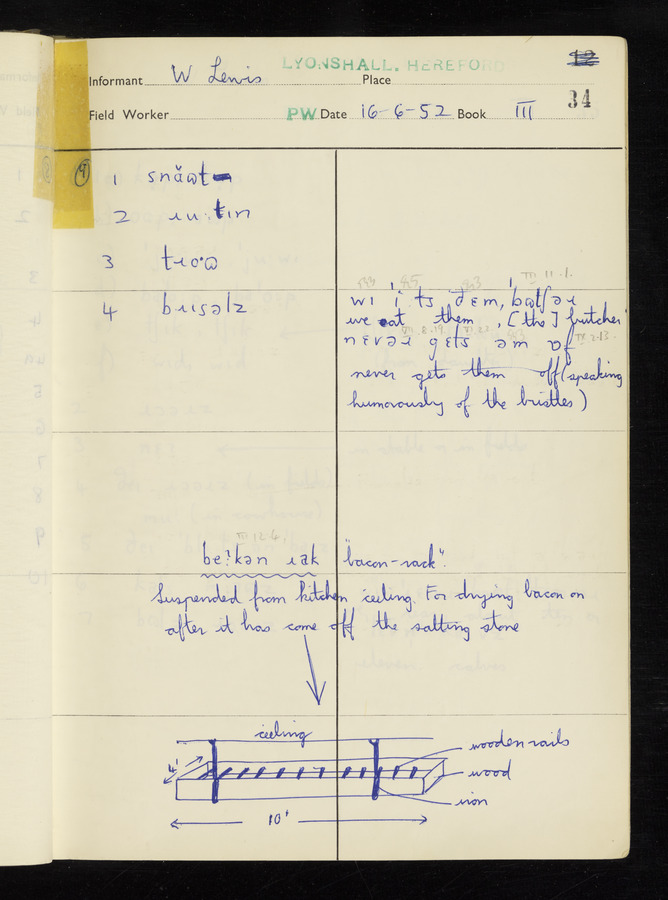 LYONSHALL. HEREFORD
Informant W Lewis Place
34
Field Worker PW Date 16-6-52 Book III
9
1 snăɷt
2 ɹu·tɪn
3 tɹoˑɷ
4 bɹɪsəlz
wɪ i ts ðɛm, bɷtʃəɹ
we eat them, [the] butcher
nɛvəɹ gɛts əm ɒf
never gets them off (speaking
humorously of the bristles)
III 12.4
beˑkən ɹak "bacon-rack".
Suspended from kitchen ceiling. For drying bacon on
after it has come off the salting stone
ceiling
wooden rails
4'
wood
iron
10'